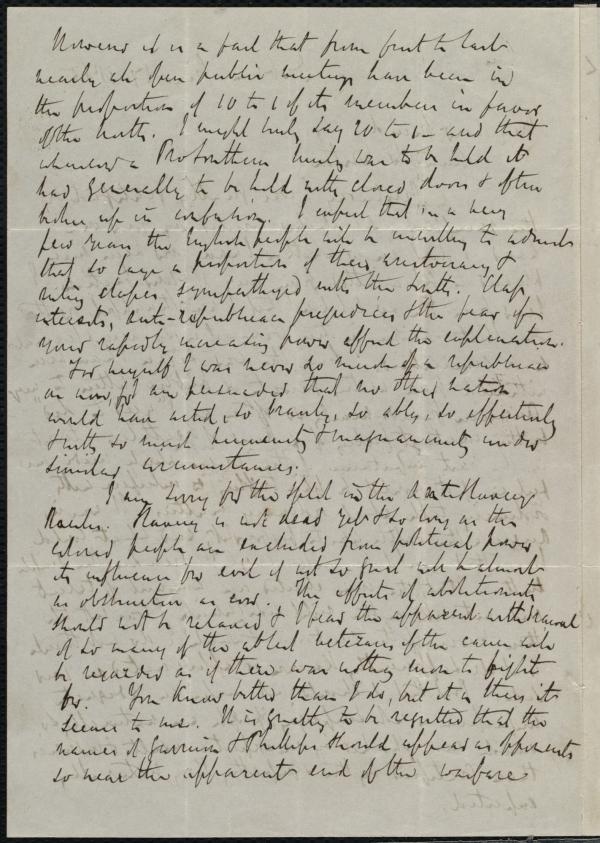 However it is a fact that from first to last
nearly all open public meetings have been in
the proportion of 10 to 1 of its members in favor
of the North. I might truly say 20 to 1 — and that
whenever a ProSouthern meeting was to be held it
had generally to be held with closed doors & often
broken up in confusion. I expect that in a very
few years the English people will be unwilling to admit
that so large a proportion of their aristocracy &
ruling classes sympathized with the South. Class
interests, anti-republican prejudices & the fear of
your rapidly increasing power afford the explanation.
For myself I was never so much of a republican
as now, for I am persuaded that no other nation
would have acted so bravely, so ably, so effectively
& with so much humanity & magnanimity under
similar circumstances.
I am sorry for the split in the Anti Slavery
Ranks. Slavery is not dead yet & so long as the
colored people are excluded from political power
its influence for evil if not so great will be almost
as obstructive as ever. The efforts of abolitionists
should not be relaxed & I fear the apparent withdrawal
of so many of the ablest veterans of the cause will
be regarded as if there was nothing more to fight
for. You know better than I do, but it is thus it
seems to me. It is greatly to be regretted that the
names of Garrison & Phillips should appear as opponents
so near the apparent end of the warfare